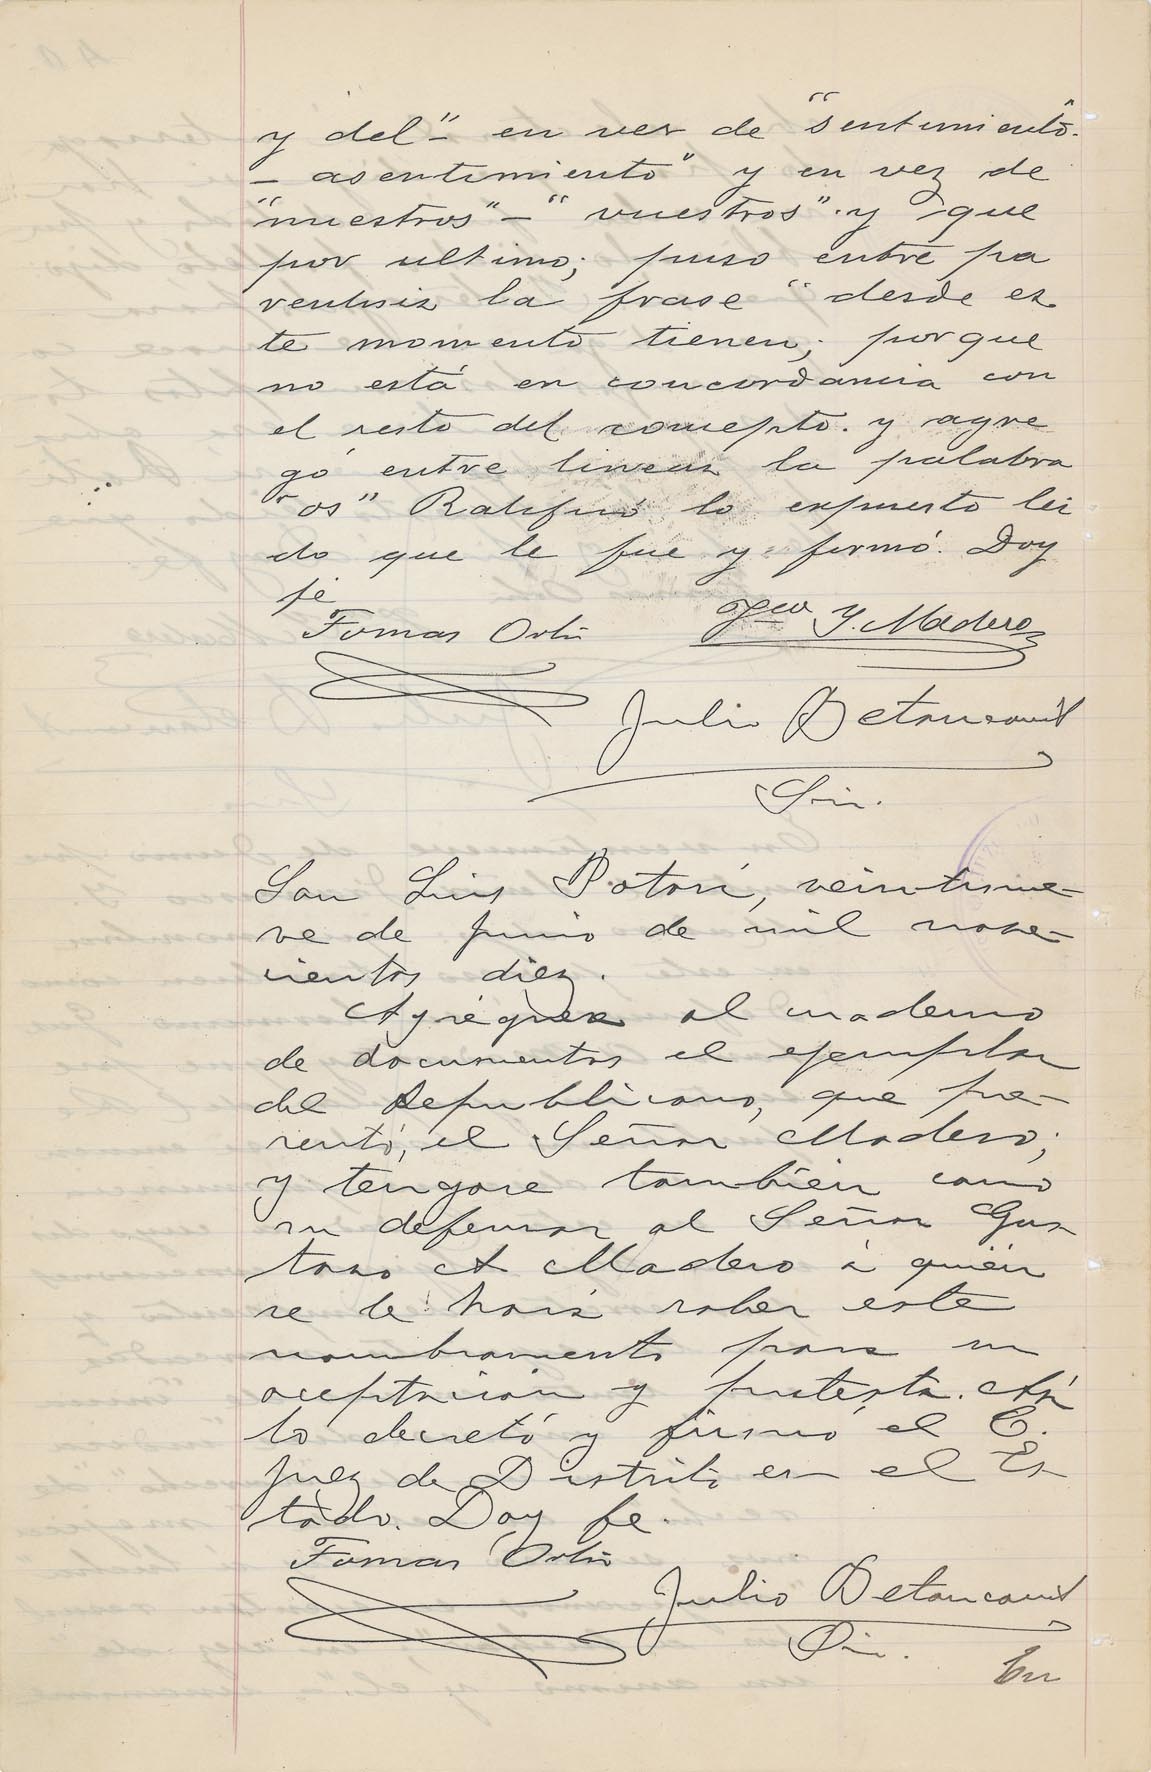 y del"- en vez de "sentimiento-
- asentimiento" y en vez de
"nuestros" - "vuestros". y que
por ultimo; puso entre pa
rentesis la frase "desde es
te momento tienen; porque
no está en concordancia con
el resto del concepto. y agre
gó entre lineas la palabra
"os" Ratificó lo expuesto lei
do que le fue y firmó. Doy
fe
Tomas Ortiz Fco. Y. Madero
Julio Betancourt
Srio.
San Luis Potosí, veintinue-
ve de Junio de mil nove-
cientos diez.
Agréguese al cuaderno
de documentos el ejemplar
del Republicano, que pre-
sentó, el Señor Madero;
y tengase también como
su defensor al Señor Gus
tavo A Madero á quién
se le hará saber este
nombramiento para su
aceptación y protesta. Así
lo decretó y firmó el C.
Juez de Distrito en el Es-
tado. Doy fe.
Tomas Ortiz
Julio Betancourt
Srio.
En